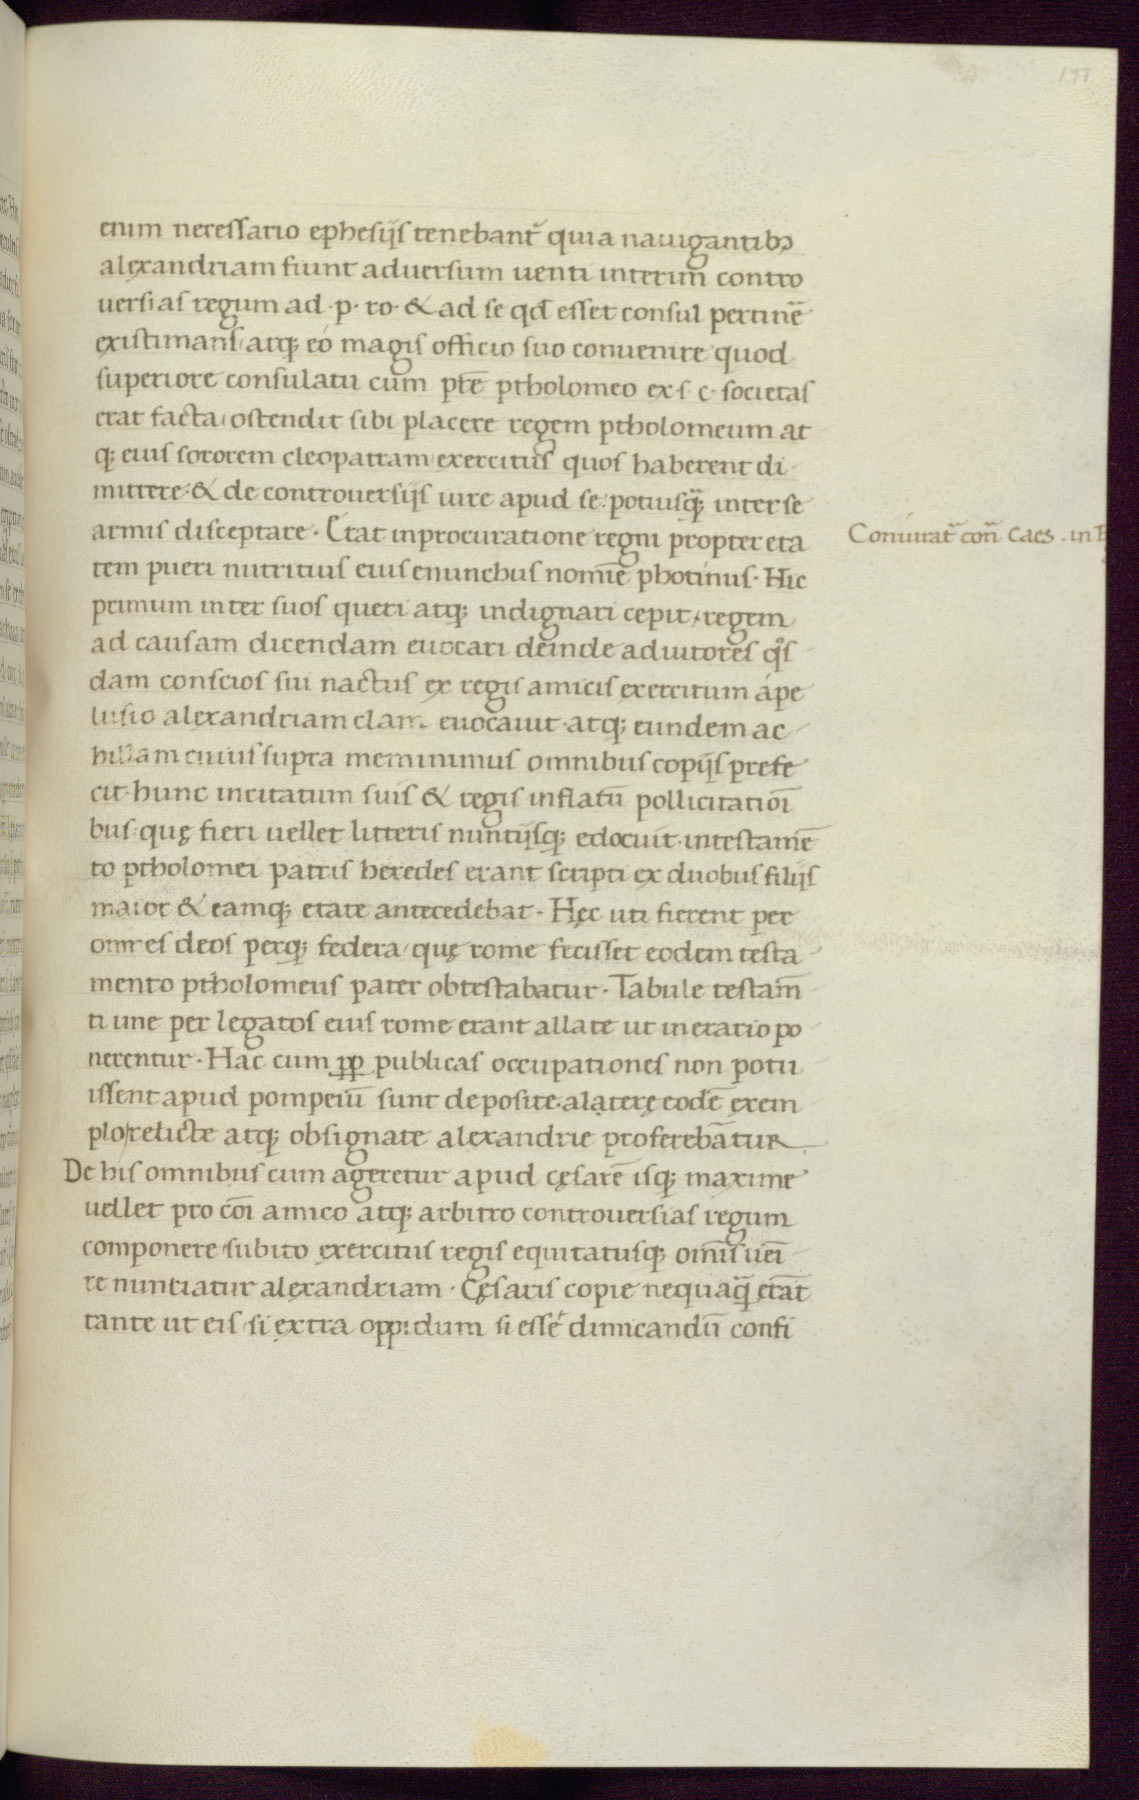 enim necessario ephesijs tenebant̃ quia nauigantibꝫ
alexandriam fiunt aduersum uenti interim̄ contro
uersias regum ad ·p· ro· & ad se qđ esset consul pertinē
existimans atqꝫ eo magis officio suo conuenire quod
superiore consulatu cum ptr̄e ptholomeo ex s· c· societas
erat facta ostendit sibi placere regem ptholomeum at
qꝫ eius sororem cleopatram exercitus quos haberent di
mittere · & de controuersijs iure apud se potiusqꝫ̃ inter se
armis disceptare · Erat in procuratione regni propter eta
tem pueri nutritius eius enunchus nomīe photinus · Hic
primum inter suos queri atqꝫ indignari cepit regem
ad causam dicendam euocari deinde adiutores qͦs
dam conscios sui nactus ex regis amicis exercitum a pe
lusio alexandriam clam euocauit · atqꝫ eundem ac
hillam cuius supra meminimus omnibus copijs prefe
cit · hunc incitatum suis & regis inflatū pollicitatioī
bus · quę fieri uellet litteris nuntijsqꝫ edocuit · in testamē
to ptholomei patris heredes erant scripti ex duobus filijs
maior & eamqꝫ etate antecedebat · Hęc uti fierent per
omnes deos perqꝫ federa quę rome fecisset eodem testa
mento ptholomeus pater obtestabatur · Tabule testam̄
ti une per legatos eius rome erant allate ut in erario po
nerentur · Hac cum pp publicas occupationes non potu
issent apud pompeiū sunt deposite · alaterę eodē exem
plo relicte atqꝫ obsignate alexandrie proferebātur
De his omnibus cum ageretur apud cęsarē isqꝫ maxime
uellet pro cōi amico atqꝫ arbitro controuersias regum
componere subito exercitus regis equitatusqꝫ omīs ueī
re nuntiatur alexandriam · Cęsaris copie nequaqꝫ̃ erāt
tante ut eis si extra oppidum si essē dimicandū confi
Coniurat̃ con̄ Caes . in